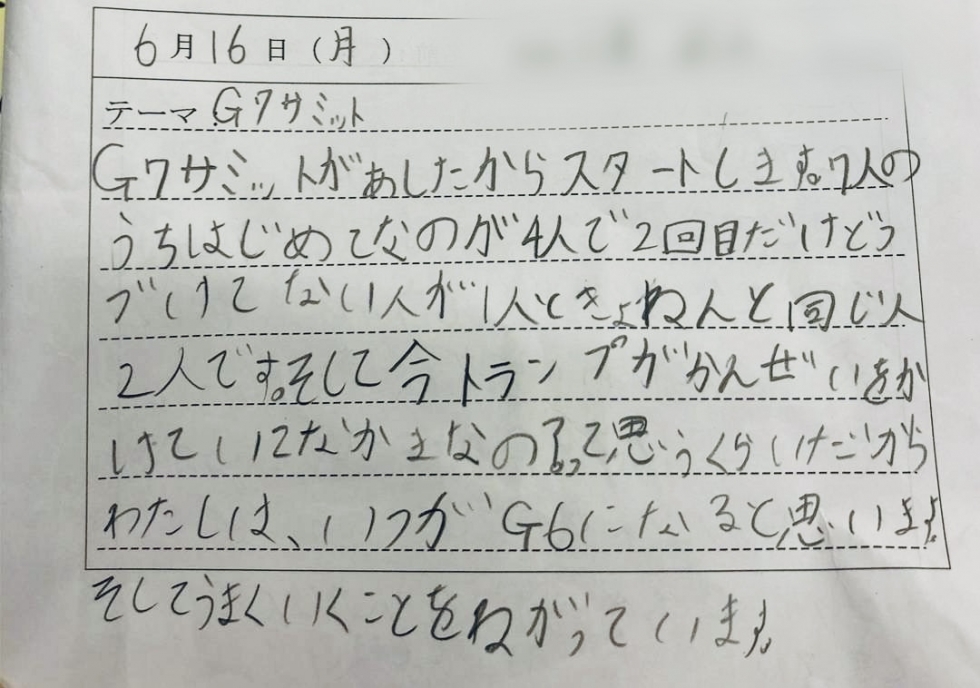 6月16日(月)
テーマ G7サミット
G7サミットがあしたからスタートします。7人の
うちはじめてなのが4人で2回目だけどう
づけてない人が1人ときょねんと同じ人
2人です。そして今トランプがかんぜいをか
けていてなかまなの?って思うくらいけだから
わたしは、いつかG6になると思います
そしてうまくいくことをねがっています。